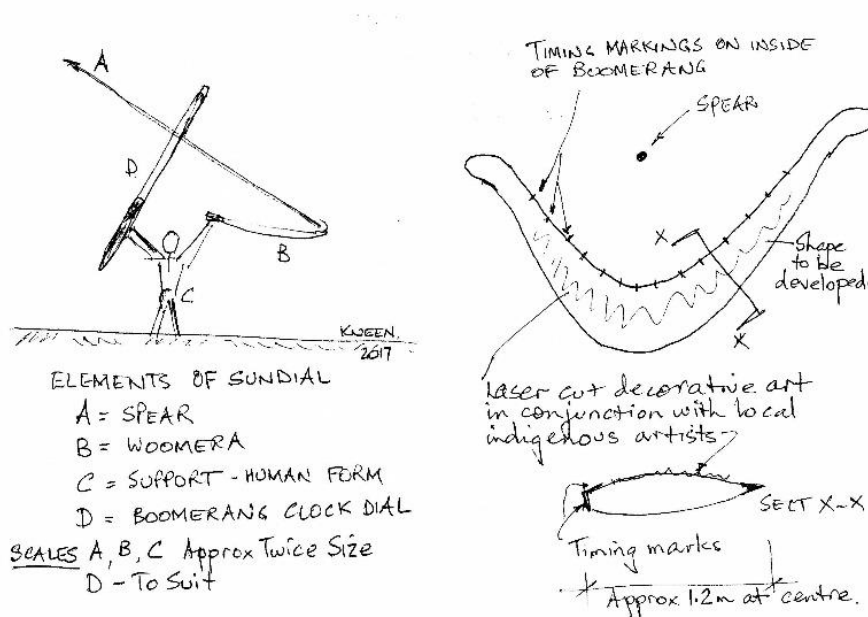 A
D
B
C
KNEEN
2017
ELEMENTS OF SUNDIAL
A = SPEAR
B = WOOMERA
C = SUPPORT - HUMAN FORM
D = BOOMERANG CLOCK DIAL
SCALES A, B, C Approx Twice Size
D - To Suit
TIMING MARKINGS ON INSIDE
OF BOOMERANG
SPEAR
X
X
Shape
to be
developed
Laser cut decorative art
in conjunction with local
indigenous artists
SECT X-X
Timing marks
Approx 1.2m at centre.